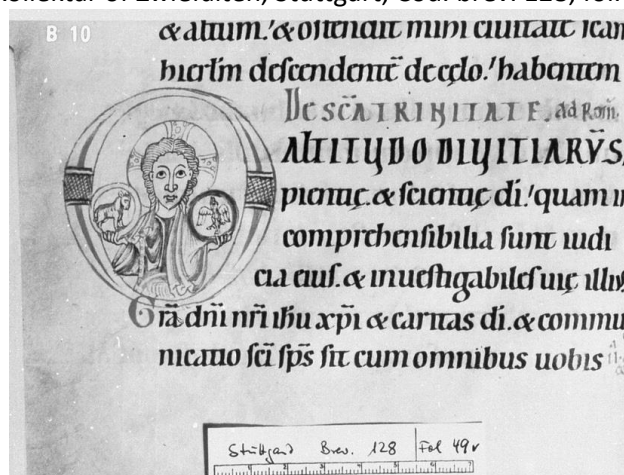 B 10
& altum. & ostendit mihi ciuitatē
hierłm descendentē de cęlo. habentem
De SCĀ TRINITATE. ad Rom̄.
ALTITUDO DIUITIARŪ S
pientię. & scientię di. quam in
comprehensibilia sunt iudi
cia eius. & inuestigabiles uię
Grā dn̄i nr̄i ih̄u xp̄i & caritas di. & commu
nicatio sc̄i sp̄s sit cum omnibus uobis
Stuttgart Brev. 128 Fol 49v